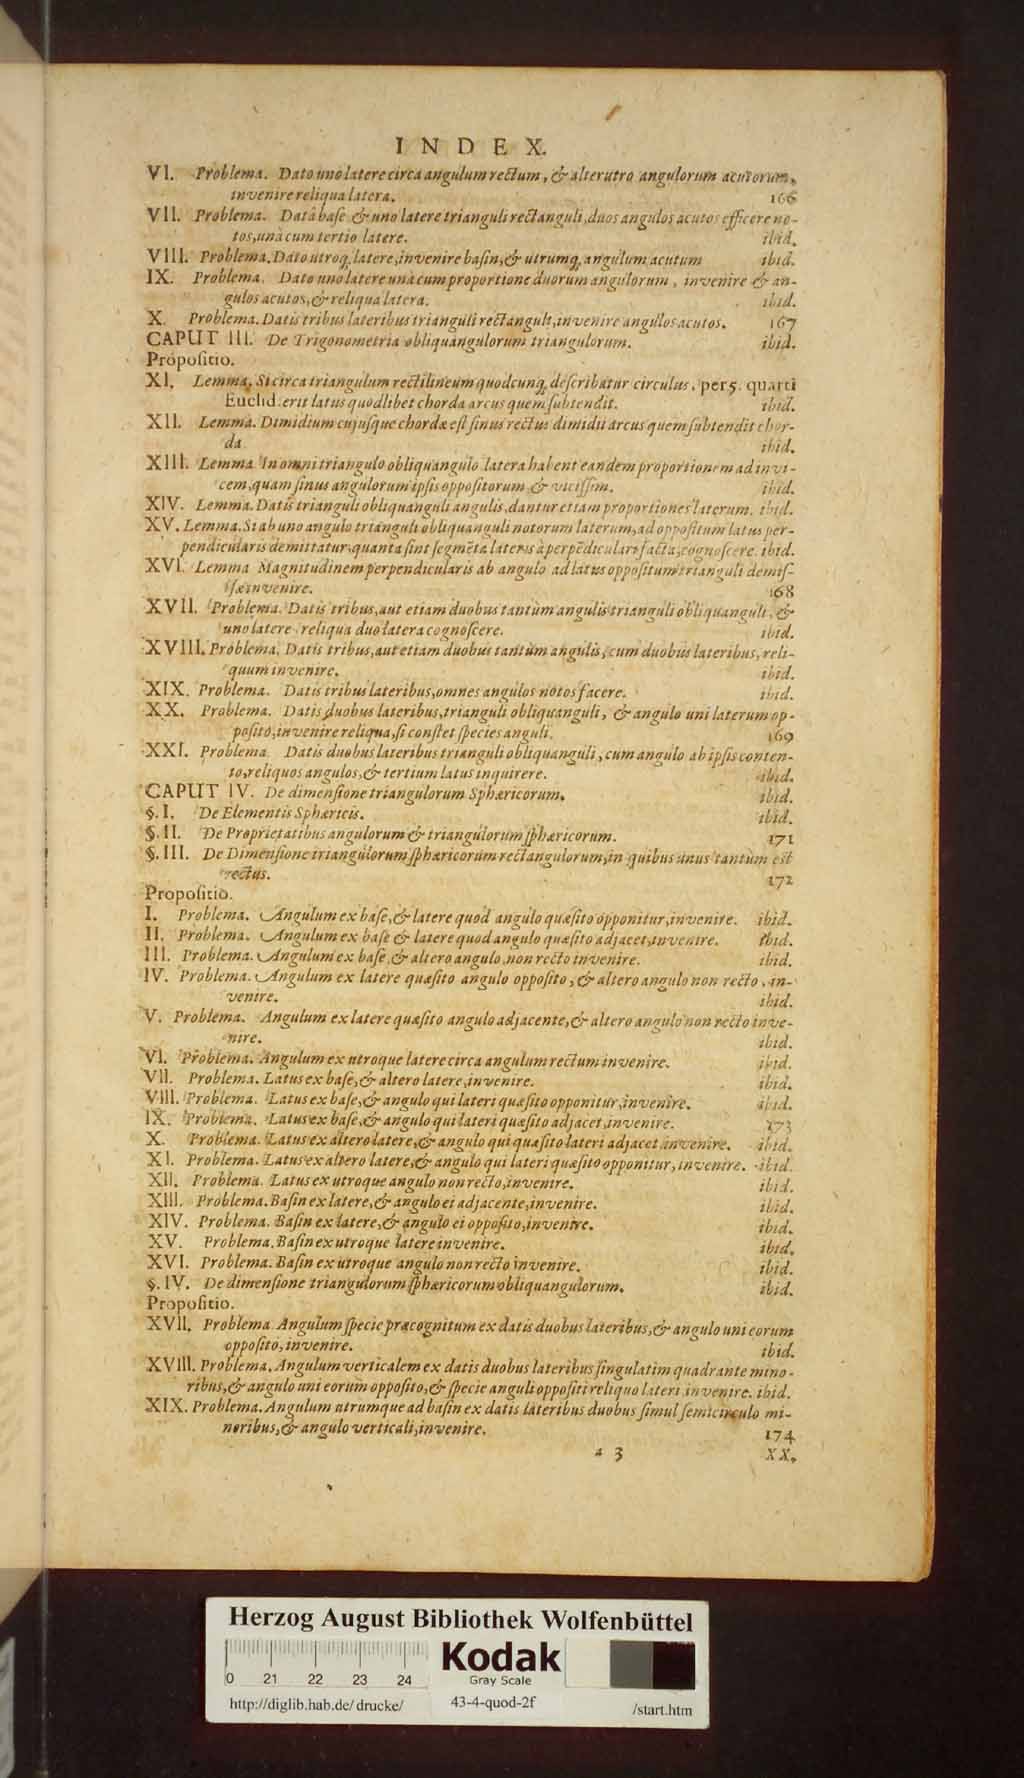 INDEX.
VI. Problema. Dato uno latere circa angulum rectum, & alterutro angulorum acutorum,
invenire reliqua latera. 166
VII. Problema. Datâ base & uno latere trianguli rectanguli, duos angulos acutos efficere no-
tos, unà cum tertio latere. ibid.
VIII. Problema. Dato utroq; latere, invenire basin, & utrumq; angulum acutum ibid.
IX. Problema. Dato uno latere unà cum proportione duorum angulorum, invenire & an-
gulos acutos, & reliqua latera. ibid.
X. Problema. Datis tribus lateribus trianguli rectanguli, invenire angulos acutos. 167
CAPUT III. De Trigonometria obliquangulorum triangulorum. ibid.
Propositio.
XI. Lemma. Si circa triangulum rectilineum quodcunq; describatur circulus, per 5. quarti
Euclid. erit latus quodlibet chorda arcus quem subtendit. ibid.
XII. Lemma. Dimidium cujusque chordæ est sinus rectus dimidii arcus quem subtendit chor-
da ibid.
XIII. Lemma In omni triangulo obliquangulo latera habent eandem proportionem ad invi-
cem, quam sinus angulorum ipsis oppositorum & vicissim. ibid.
XIV. Lemma. Datis trianguli obliquanguli angulis, dantur etiam proportiones laterum. ibid.
XV. Lemma. Si ab uno angulo trianguli obliquanguli notorum laterum, ad oppositum latus per-
pendicularis demittatur, quanta sint segmẽta lateris à perpẽdiculari facta, cognoscere. ibid.
XVI. Lemma Magnitudinem perpendicularis ab angulo ad latus oppositum trianguli demis-
sæ invenire. 168
XVII. Problema. Datis tribus, aut etiam duobus tantùm angulis trianguli obliquanguli, &
uno latere, reliqua duo latera cognoscere. ibid.
XVIII. Problema. Datis tribus, aut etiam duobus tantùm angulis, cum duobus lateribus, reli-
quum invenire. ibid.
XIX. Problema. Datis tribus lateribus, omnes angulos notos facere. ibid.
XX. Problema. Datis duobus lateribus, trianguli obliquanguli, & angulo uni laterum op-
posito, invenire reliqua, si constet species anguli. 169
XXI. Problema. Datis duobus lateribus trianguli obliquanguli, cum angulo ab ipsis conten-
to, reliquos angulos, & tertium latus inquirere. ibid.
CAPUT IV. De dimensione triangulorum Sphæricorum. ibid.
§. I. De Elementis Sphæricis. ibid.
§. II. De Proprietatibus angulorum & triangulorum sphæricorum. 171
§. III. De Dimensione triangulorum sphæricorum rectangulorum, in quibus unus tantùm est
rectus. 172
Propositio.
I. Problema. Angulum ex base, & latere quod angulo quæsito opponitur, invenire. ibid.
II. Problema. Angulum ex base & latere quod angulo quæsito adjacet, invenire. ibid.
III. Problema. Angulum ex base, & altero angulo, non recto invenire. ibid.
IV. Problema. Angulum ex latere quæsito angulo opposito, & altero angulo non recto, in-
venire. ibid.
V. Problema. Angulum ex latere quæsito angulo adjacente, & altero angulo non recto inve-
nire. ibid.
VI. Problema. Angulum ex utroque latere circa angulum rectum invenire. ibid.
VII. Problema. Latus ex base, & altero latere, invenire. ibid.
VIII. Problema. Latus ex base, & angulo qui lateri quæsito opponitur, invenire. ibid.
IX. Problema. Latus ex base, & angulo qui lateri quæsito adjacet, invenire. 173
X. Problema. Latus ex altero latere, & angulo qui quæsito lateri adjacet, invenire. ibid.
XI. Problema. Latus ex altero latere, & angulo qui lateri quæsito opponitur, invenire. ibid.
XII. Problema. Latus ex utroque angulo non recto, invenire. ibid.
XIII. Problema. Basin ex latere, & angulo ei adjacente, invenire. ibid.
XIV. Problema. Basin ex latere, & angulo ei opposito, invenire. ibid.
XV. Problema. Basin ex utroque latere invenire. ibid.
XVI. Problema. Basin ex utroque angulo non recto invenire. ibid.
§. IV. De dimensione triangulorum sphæricorum obliquangulorum. ibid.
Propositio.
XVII. Problema Angulum specie præcognitum ex datis duobus lateribus, & angulo uni eorum
opposito, invenire. ibid.
XVIII. Problema. Angulum verticalem ex datis duobus lateribus singulatim quadrante mino-
ribus, & angulo uni eorum opposito, & specie anguli oppositi reliquo lateri invenire. ibid.
XIX. Problema. Angulum utrumque ad basin ex datis lateribus duobus simul semicirculo mi-
noribus, & angulo verticali, invenire. 174
a 3 XX.
Herzog August Bibliothek Wolfenbüttel
0 21 22 23 24
Kodak
Gray Scale
http://diglib.hab.de/drucke/ 43-4-quod-2f /start.htm